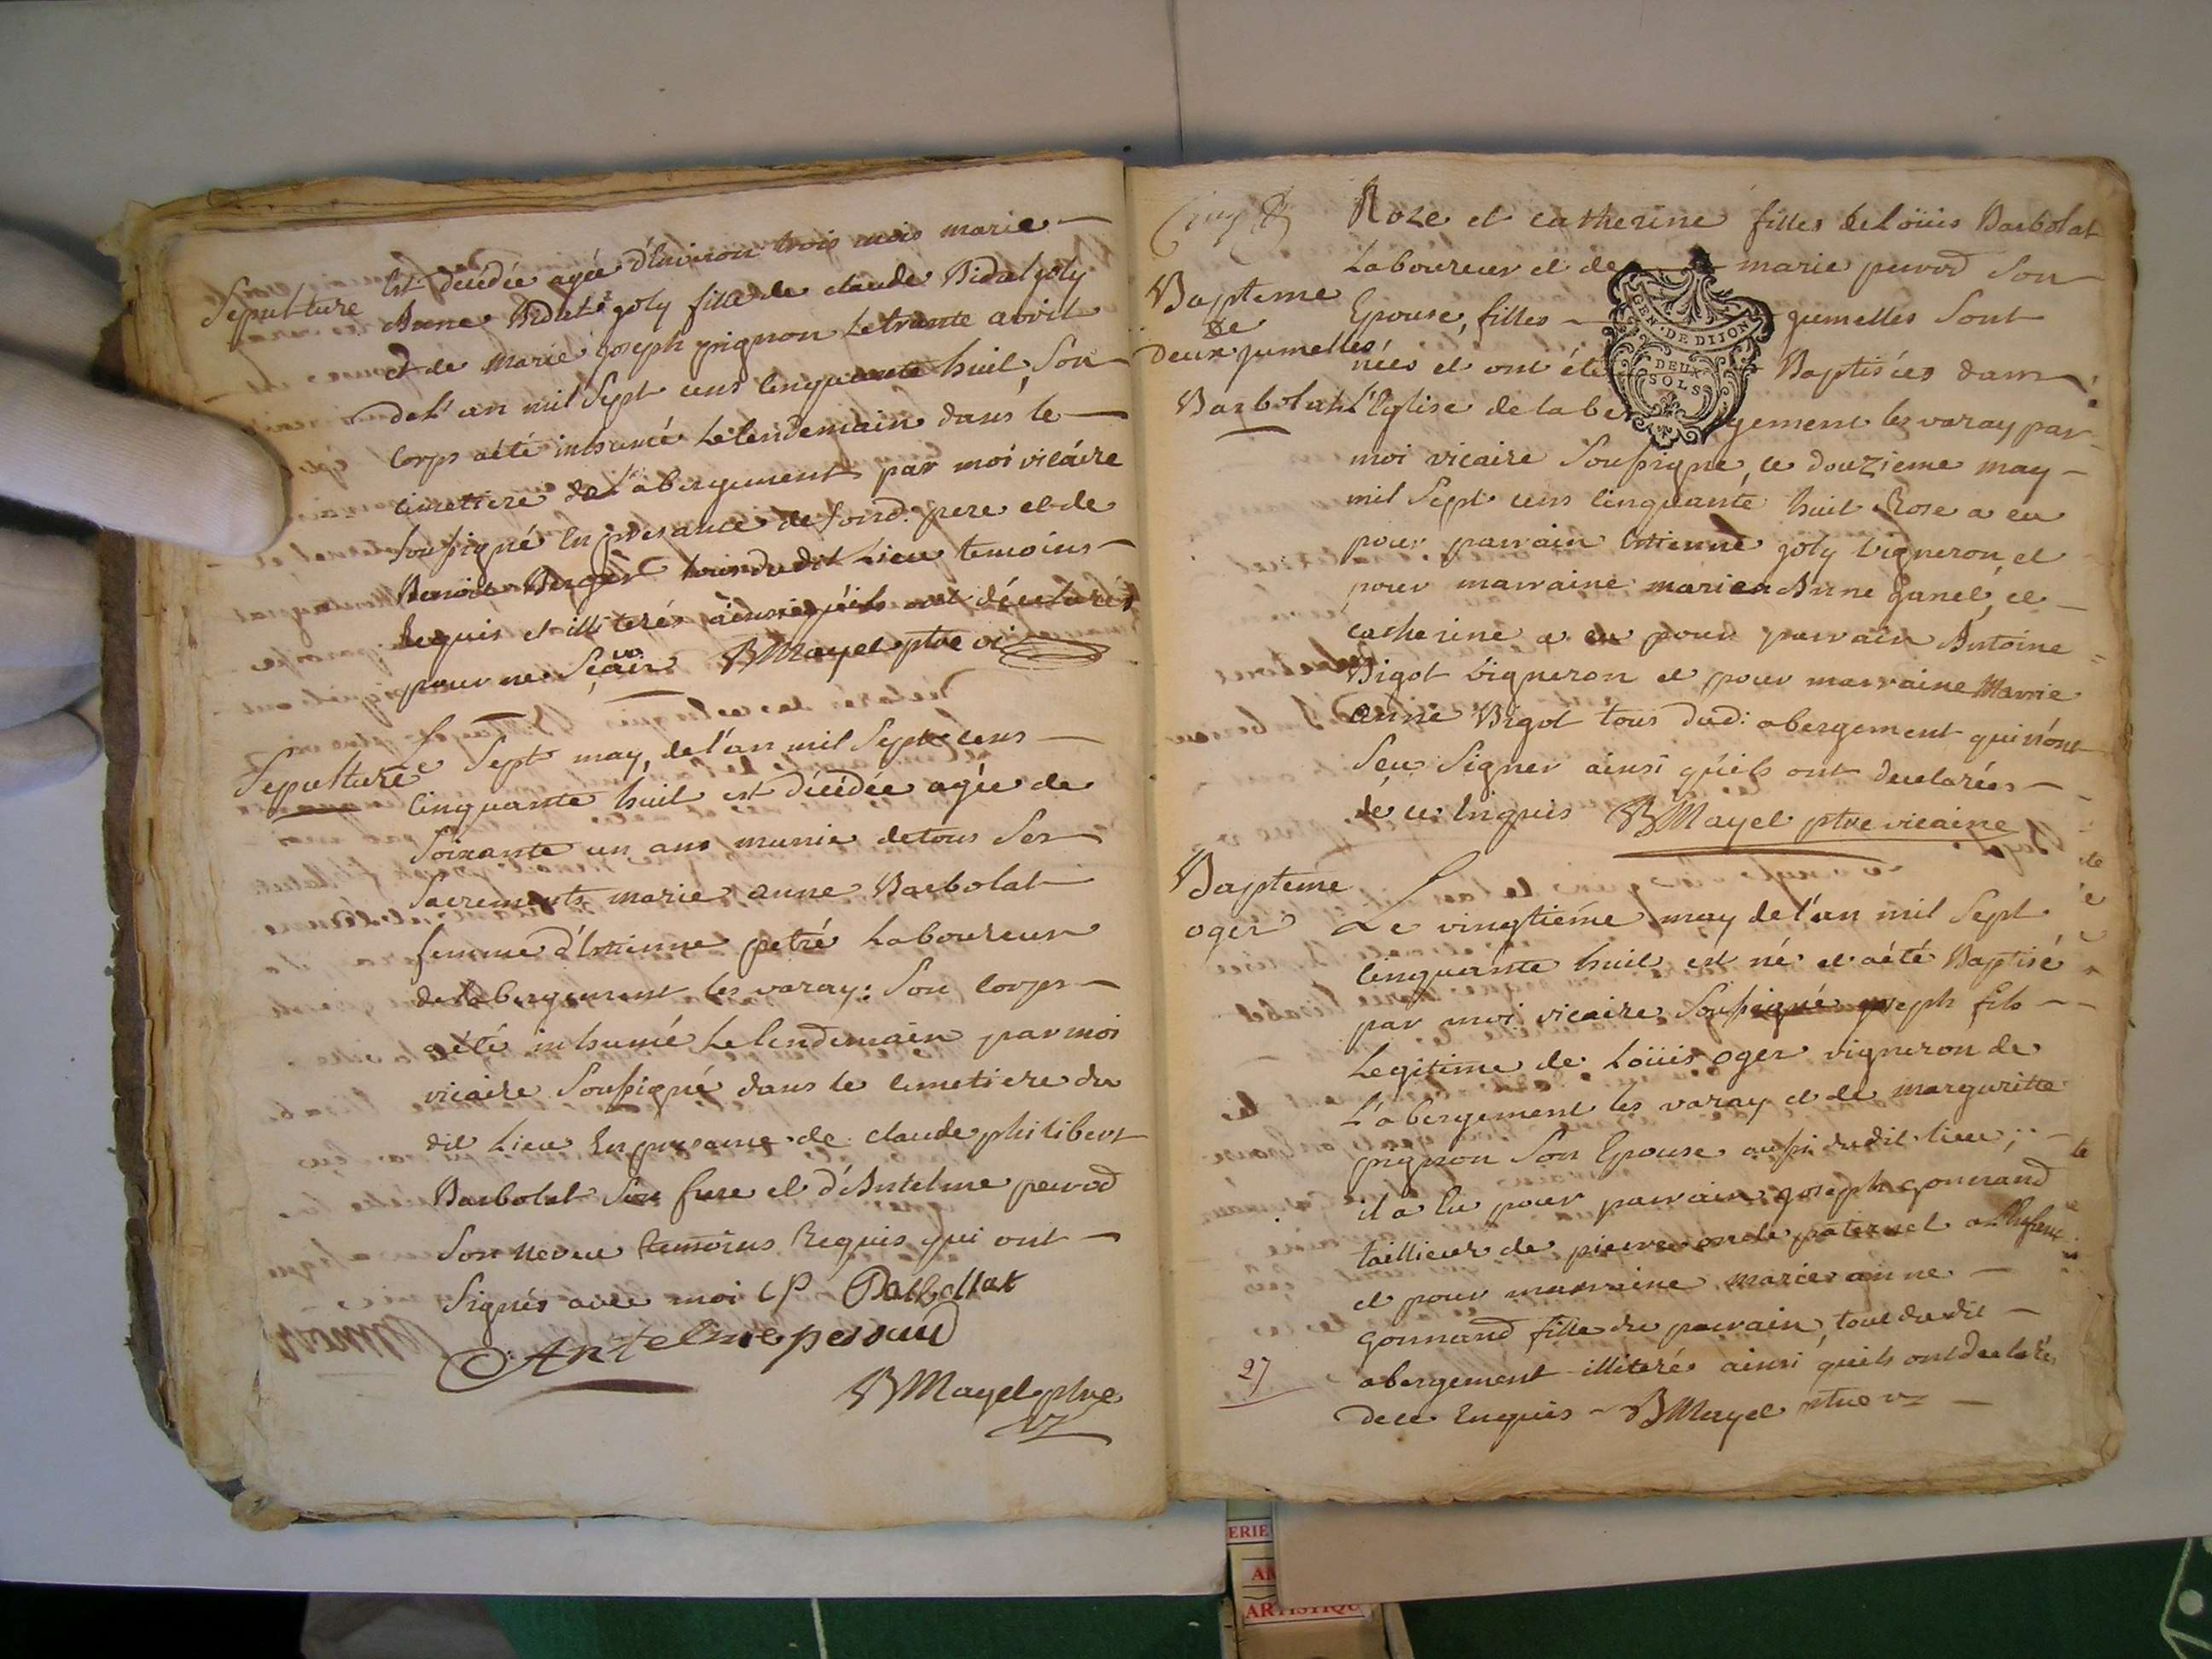 Sepulture
Est décédée agée d'Environ trois mois marie
Anne Bidal joly fille de claude Bidal joly
et de marie joseph prignon Le trante avril
de l'an mil Sept cens Cinquante huit, Son
Corps aété inhumé Le lendemain dans le
Cimettiere de l'abergement par moi vicaire
Soussigné En presance de Sond. pere et de
Benoit Berger tous dudit Lieu temoins
Requis et illiterés ainsi qu'ils ont déclarés
pour ne Sçavoir BMayel ptre vi
Sepulture
Le Sept may, de l'an mil Sept cens
Cinquante huit est décédée agée de
Soixante un ans munie de tous Ses
Sacrements marie anne Barbolat
femme d'Etienne petré Laboureur
de labergement les varay: Son Corps
aété inhumé Le lendemain par moi
vicaire Soussigné dans le Cimetiere du
dit Lieu En presance de claude philibert
Barbolat Son frere et d'Antelme perrod
Son neveu temoins Requis qui ont
Signés avec moi CP Balbollat
Antelme perraud
BMayel ptre
vz
Bapteme
de
Deux jumelles
Barbolat
Roze et catherine filles de Loüis Barbolat
Laboureur et de marie perrod Son
Epouse, filles jumelles Sont
nées et ont été Baptisées dans
L'Eglise de labergement les varay par
moi vicaire Soussigné, ce douzieme may
mil Sept cens Cinquante huit Rose a eu
pour parrain Etienne joly vigneron, et
pour marraine marie Anne ganel, et
catherine a eu pour parrain Antoine
Bigot vigneron et pour marraine Marie
anne Bigot tous dud: abergement qui n'ont
Seu Signer ainsi qu'ils ont declarées
de ce Enquis BMayel ptre vicaire
GEN · DE DIJON
DEUX
SOLS
Bapteme
oger
Le vingtieme may de l'an mil Sept
Cinquante huit est né et aété Baptisé
par moi vicaire Soussigné joseph fils
Legitime de Loüis oger vigneron de
L'abergement les varay et de margueritte
prignon Son Epouse aussi dudit lieu;
il a Eu pour parrain joseph gonnand
taillieur de pierre oncle paternel a l'Enfant
et pour marraine marie anne
gonnand fille du parrain, tout dudit
abergement illiterés ainsi qu'ils ont declarés
de ce Enquis BMayel ptre vz
27
ERIE
ARTISTIQU